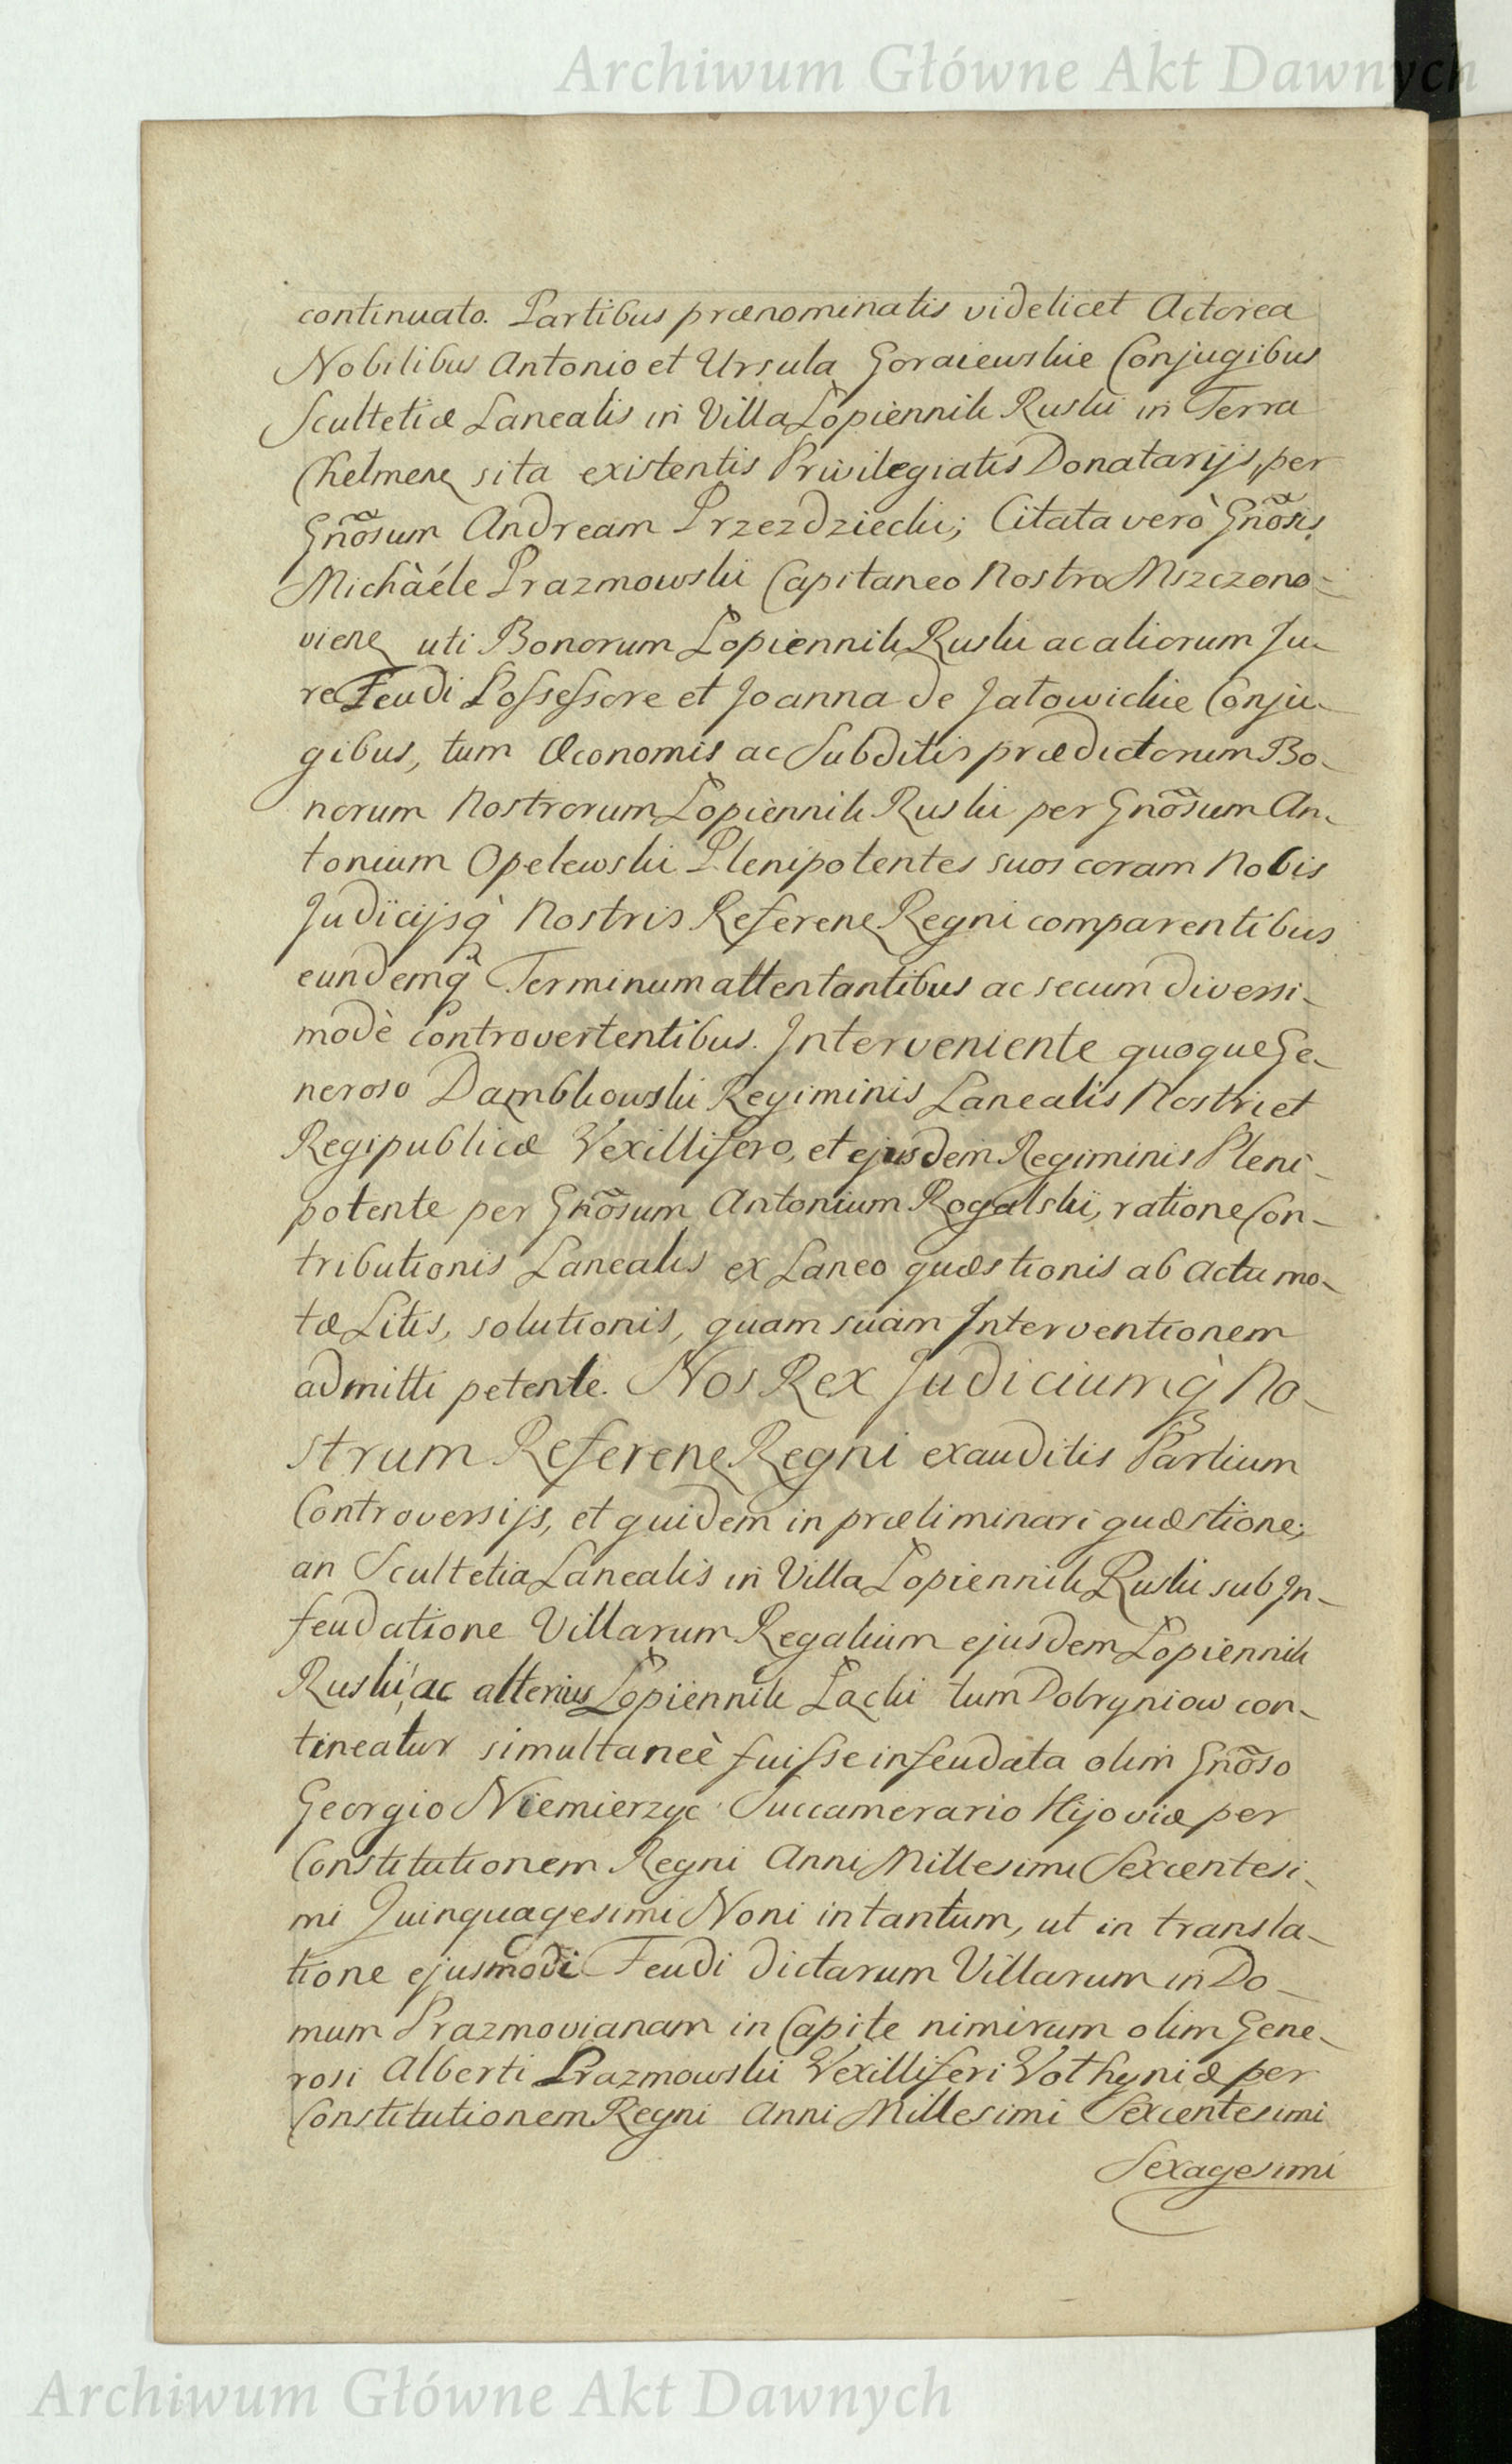 Archiwum Główne Akt Dawnych
continuato. Partibus prænominatis videlicet Actorea
Nobilibus Antonio et Ursula Goraiewskie Conjugibus
Scultetiæ Lanealis in Villa Łopiennik Ruski in Terra
Chelmenę sita existentis Privilegiatis Donatarijs, per
Gnõsum Andream Przezdziecki; Citata verò Gnõsis
Michàéle Prazmowski Capitaneo Nostro Mszczono-
vienę uti Bonorum Łopiennik Ruski ac aliorum Ju-
re Feudi Possessore et Joanna de Jatowickie Conju-
gibus, tum Œconomis ac Subditis prædictorum Bo-
norum Nostrorum Łopiennik Ruski per Gnõsum An-
tonium Opelewski Plenipotentes suos coram Nobis
Judicijsq̀ Nostris Referenę Regni comparentibus
eundemq̀ Terminum attentantibus ac secum diversi-
modè controvertentibus. Interveniente quoque Ge-
neroso Dąmbkowski Regiminis Lanealis Nostri et
Regipublicæ Vexillifero, et ejusdem Regiminis Pleni-
potente per Gnõsum Antonium Rogalski, ratione Con-
tributionis Lanealis ex Laneo quæstionis ab actu mo-
tæ Litis, solutionis, quam suam Interventionem
admitti petente. Nos Rex Judiciumq̀ No-
strum Referenę Regni exauditis Partium
Controversijs, et quidem in præliminari quæstione;
an Scultetia Lanealis in Villa Łopiennik Ruski sub In-
feudatione Villarum Regalium ejusdem Łopiennik
Ruski, ac alterius Łopiennik Lacki tum Dobryniow con-
tineatur simultaneè fuisse infeudata olim Gnõso
Georgio Niemierzyc Succamerario Kijoviæ per
Constitutionem Regni Anni Millesimi Sexcentesi-
mi Quinquagesimi Noni in tantum, ut in transla-
tione ejusmodi Feudi dictarum Villarum in Do-
mum Prazmovianam in Capite nimirum olim Gene-
rosi Alberti Prazmowski Vexilliferi Volhyniæ per
Constitutionem Regni Anni Millesimi Sexcentesimi
Sexagesimi
Archiwum Główne Akt Dawnych